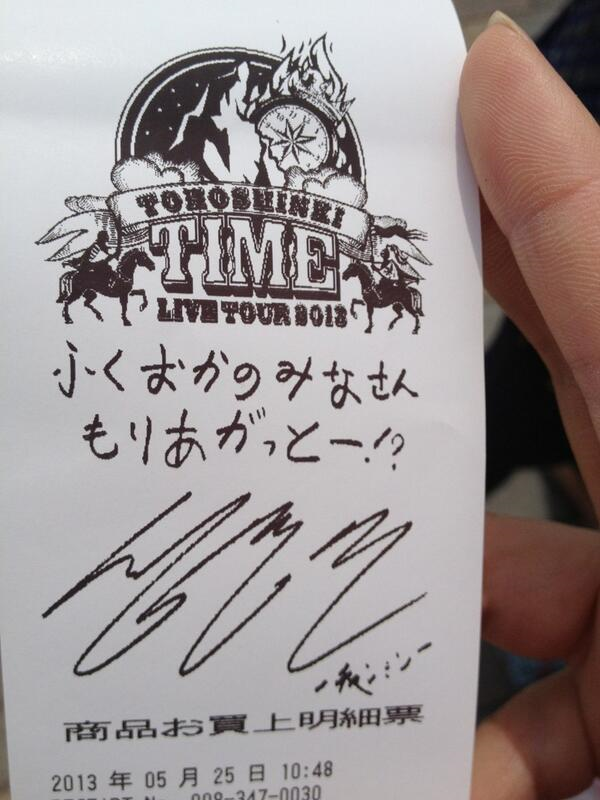 TOHOSHINKI
TIME
LIVE TOUR 2013
ふくおかのみなさん
もりあがっとー!?
商品お買上明細票
2013 年 05 月 25 日 10:48
RECEIPT No. 008-347-0030